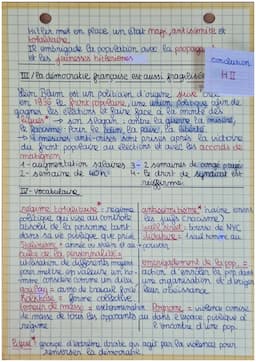 Hitler met en place un état nazi, antisémite et
totalitaire.
Il embrigade la population avec la propagande
et les jeunesses hitlériennes
conclusion
H II
III/ la démocratie française est aussi fragilisée
Léon Blum est un politicien d'origine juive
en 1936 le front populaire, une union politique afin de
gagner les élections et faire face à la montée des
ligues → son slogan : contre la guerre, la misère,
le fascisme : Pour le pain, la paix, la liberté
4 mesures anti-crises sont prises après la victoire
du front populaire aux élections et avec les accords de
matignon
1 - augmentation salaires
3 - 2 semaines de congé payés
2 - semaine de 40h
4 - le droit de syndicat est
réaffirmé
IV - vocabulaire
régime totalitaire : régime
politique qui use au contrôle
absolu de la personne tant
dans sa vie politique que privé
culte de la personnalité =
utilisation de différents moyens
pour mettre en valeur un ho-
mme considéré comme un dieu
goulag = camp de travail forcé
Kolkhoze = ferme collective
antisémitisme : haine envers
les juifs (racisme)
wall street : bourse de NYC
dictature : seul homme au
pouvoir
embrigadement de la pop. =
action d'enrôler la pop dans
une organisation et d'exiger
leur obéissance
terreur de masse = extermination
de masse de tous les opposants au
régime
Pogrome = violence comise
dans l'espace politique à
l'encontre d'une pop.
Ligues = groupe d'extrême droite qui agit par la violence pour
renverser la démocratie.